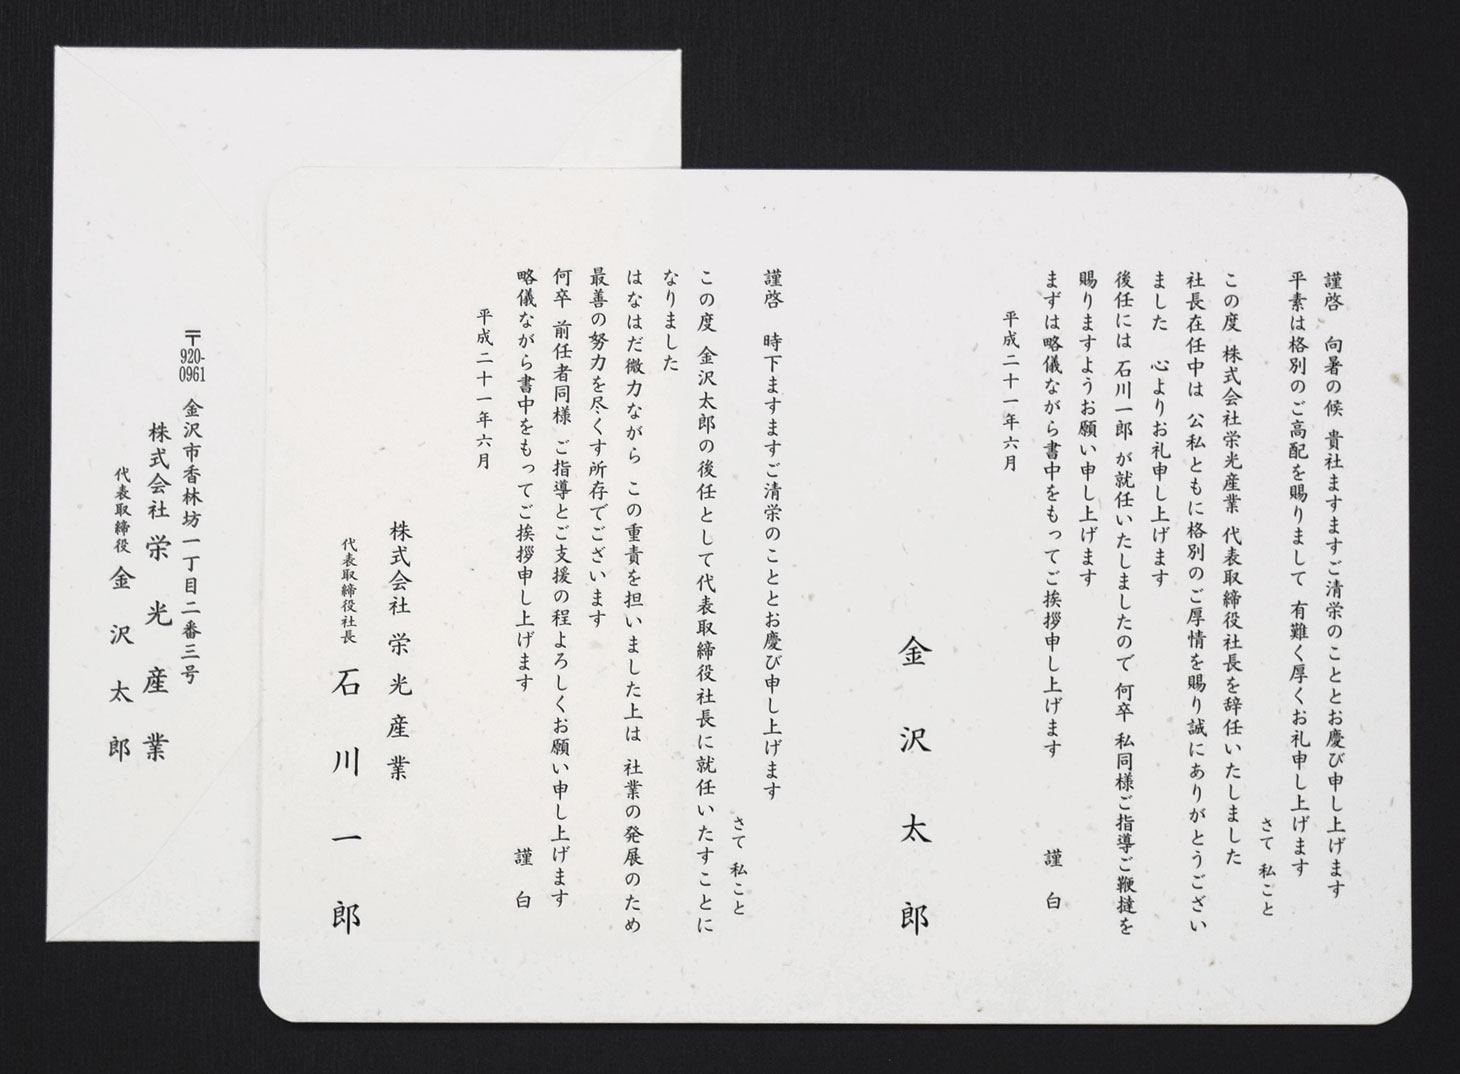 謹啓 向暑の候 貴社ますますご清栄のこととお慶び申し上げます
平素は格別のご高配を賜りまして 有難く厚くお礼申し上げます
さて 私こと
この度 株式会社栄光産業 代表取締役社長を辞任いたしました
社長在任中は 公私ともに格別のご厚情を賜り誠にありがとうござい
ました 心よりお礼申し上げます
後任には 石川一郎 が就任いたしましたので 何卒 私同様ご指導ご鞭撻を
賜りますようお願い申し上げます
まずは略儀ながら書中をもってご挨拶申し上げます
謹白
平成二十一年六月
金沢太郎
謹啓 時下ますますご清栄のこととお慶び申し上げます
さて 私こと
この度 金沢太郎の後任として代表取締役社長に就任いたすことに
なりました
はなはだ微力ながら この重責を担いました上は 社業の発展のため
最善の努力を尽くす所存でございます
何卒 前任者同様 ご指導とご支援の程よろしくお願い申し上げます
略儀ながら書中をもってご挨拶申し上げます
謹白
平成二十一年六月
株式会社 栄光産業
代表取締役社長 石川一郎
〒920-0961 金沢市香林坊一丁目二番三号
株式会社 栄光産業
代表取締役 金沢太郎